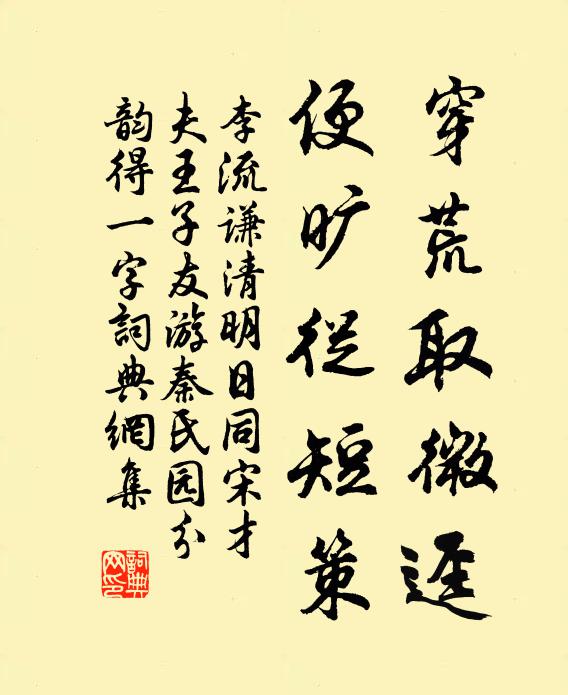 穿荒取微迳
便旷從短策
李流谦清明日同宋才
夫王子友游秦氏园分
韵得一字詞典網集
詞典網印